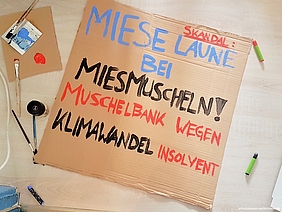 SKANDAL:
MIESE LAUNE
BEI
MIESMUSCHELN!
MUSCHELBANK WEGEN
KLIMAWANDEL INSOLVENT